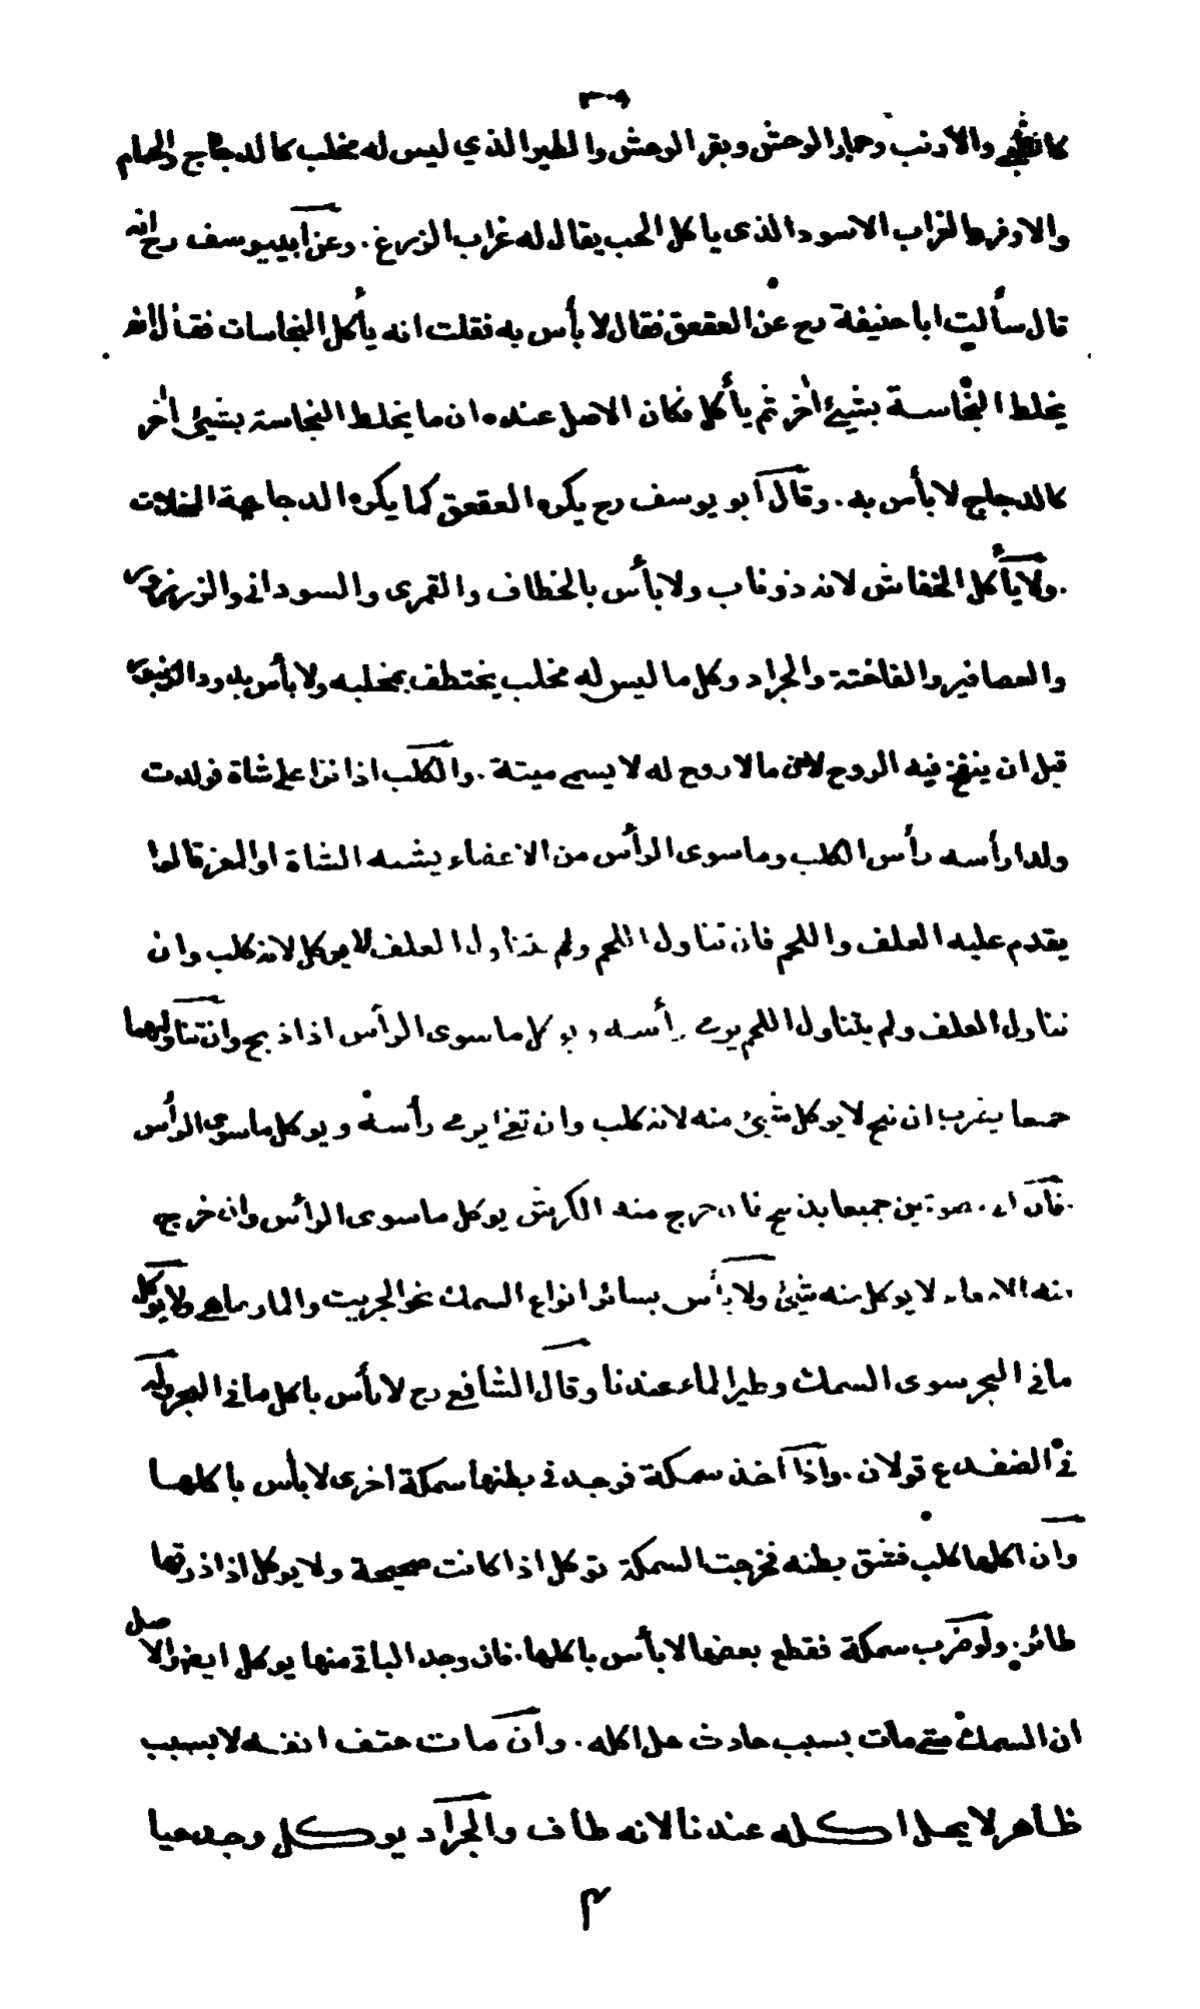 كالظبي والأرنب وحمار الوحش وبقر الوحش والطير الذي ليس له مخلب كالدجاج والحمام
والاوز والغراب الاسود الذى ياكل الحب يقال له غراب الزرع . وعن ابيوسف رح انه
قال سألت ابا حنيفة رح عن العقعق فقال لا بأس به فقلت انه يأكل النجاسات فقال انه
يخلط النجاسة بشيئ آخر ثم يأكل فكان الاصل عنده ان ما يخلط النجاسة بشيئ آخر
كالدجاج لا بأس به . وقال ابو يوسف رح يكره العقعق كما يكره الدجاجة المخلات
. ولا يأكل الخفاش لانه ذو ناب ولا بأس بالخطاف والقمرى والسودانى والزرزور
والعصافير والفاختة والجراد وكل ما ليس له مخلب يختطف بمخلبه ولا بأس بدود الزنبور
قبل ان ينفخ فيه الروح لان مالا روح له لا يسمى ميتة . والكلب اذا نزا على شاة فولدت
ولدا رأسه رأس الكلب وما سوى الرأس من الاعضاء يشبه الشاة او المعز قالوا
يقدم عليه العلف واللحم فان تناول اللحم ولم يتناول العلف لا يوكل لانه كلب وان
تناول العلف ولم يتناول اللحم يرمى رأسه ويوكل ما سوى الرأس اذا ذبح وان تناولهما
جميعا يضرب ان نبح لا يوكل شيئ منه لانه كلب وان ثغا يرمى رأسه ويوكل ما سوى الرأس
. فان اتى بصوتين جميعا يذبح فان خرج منه الكرش يوكل ما سوى الرأس وان خرج
منه الامعاء لا يوكل منه شيئ ولا بأس بسائر انواع السمك نحو الجريث والمارماهى ولا يوكل
مافى البحر سوى السمك وطير الماء عندنا وقال الشافعى رح لا بأس باكل مافى البحر وله
فى الضفدع قولان . واذا اخذ سمكة فوجد فى بطنها سمكة اخرى لا بأس باكلها
وان اكلها كلب فشق بطنه فخرجت السمكة توكل اذا كانت صحيحة ولا يوكل اذا ذرقها
طائر . ولو ضرب سمكة فقطع بعضها لا بأس باكلها . فان وجد الباقى منها يوكل ايضا والاصل
ان السمك متى مات بسبب حادث حل اكله . وان مات حتف انفه لا بسبب
ظاهر لا يحل اكله عندنا لانه طاف والجراد يوكل وجد حيا
م